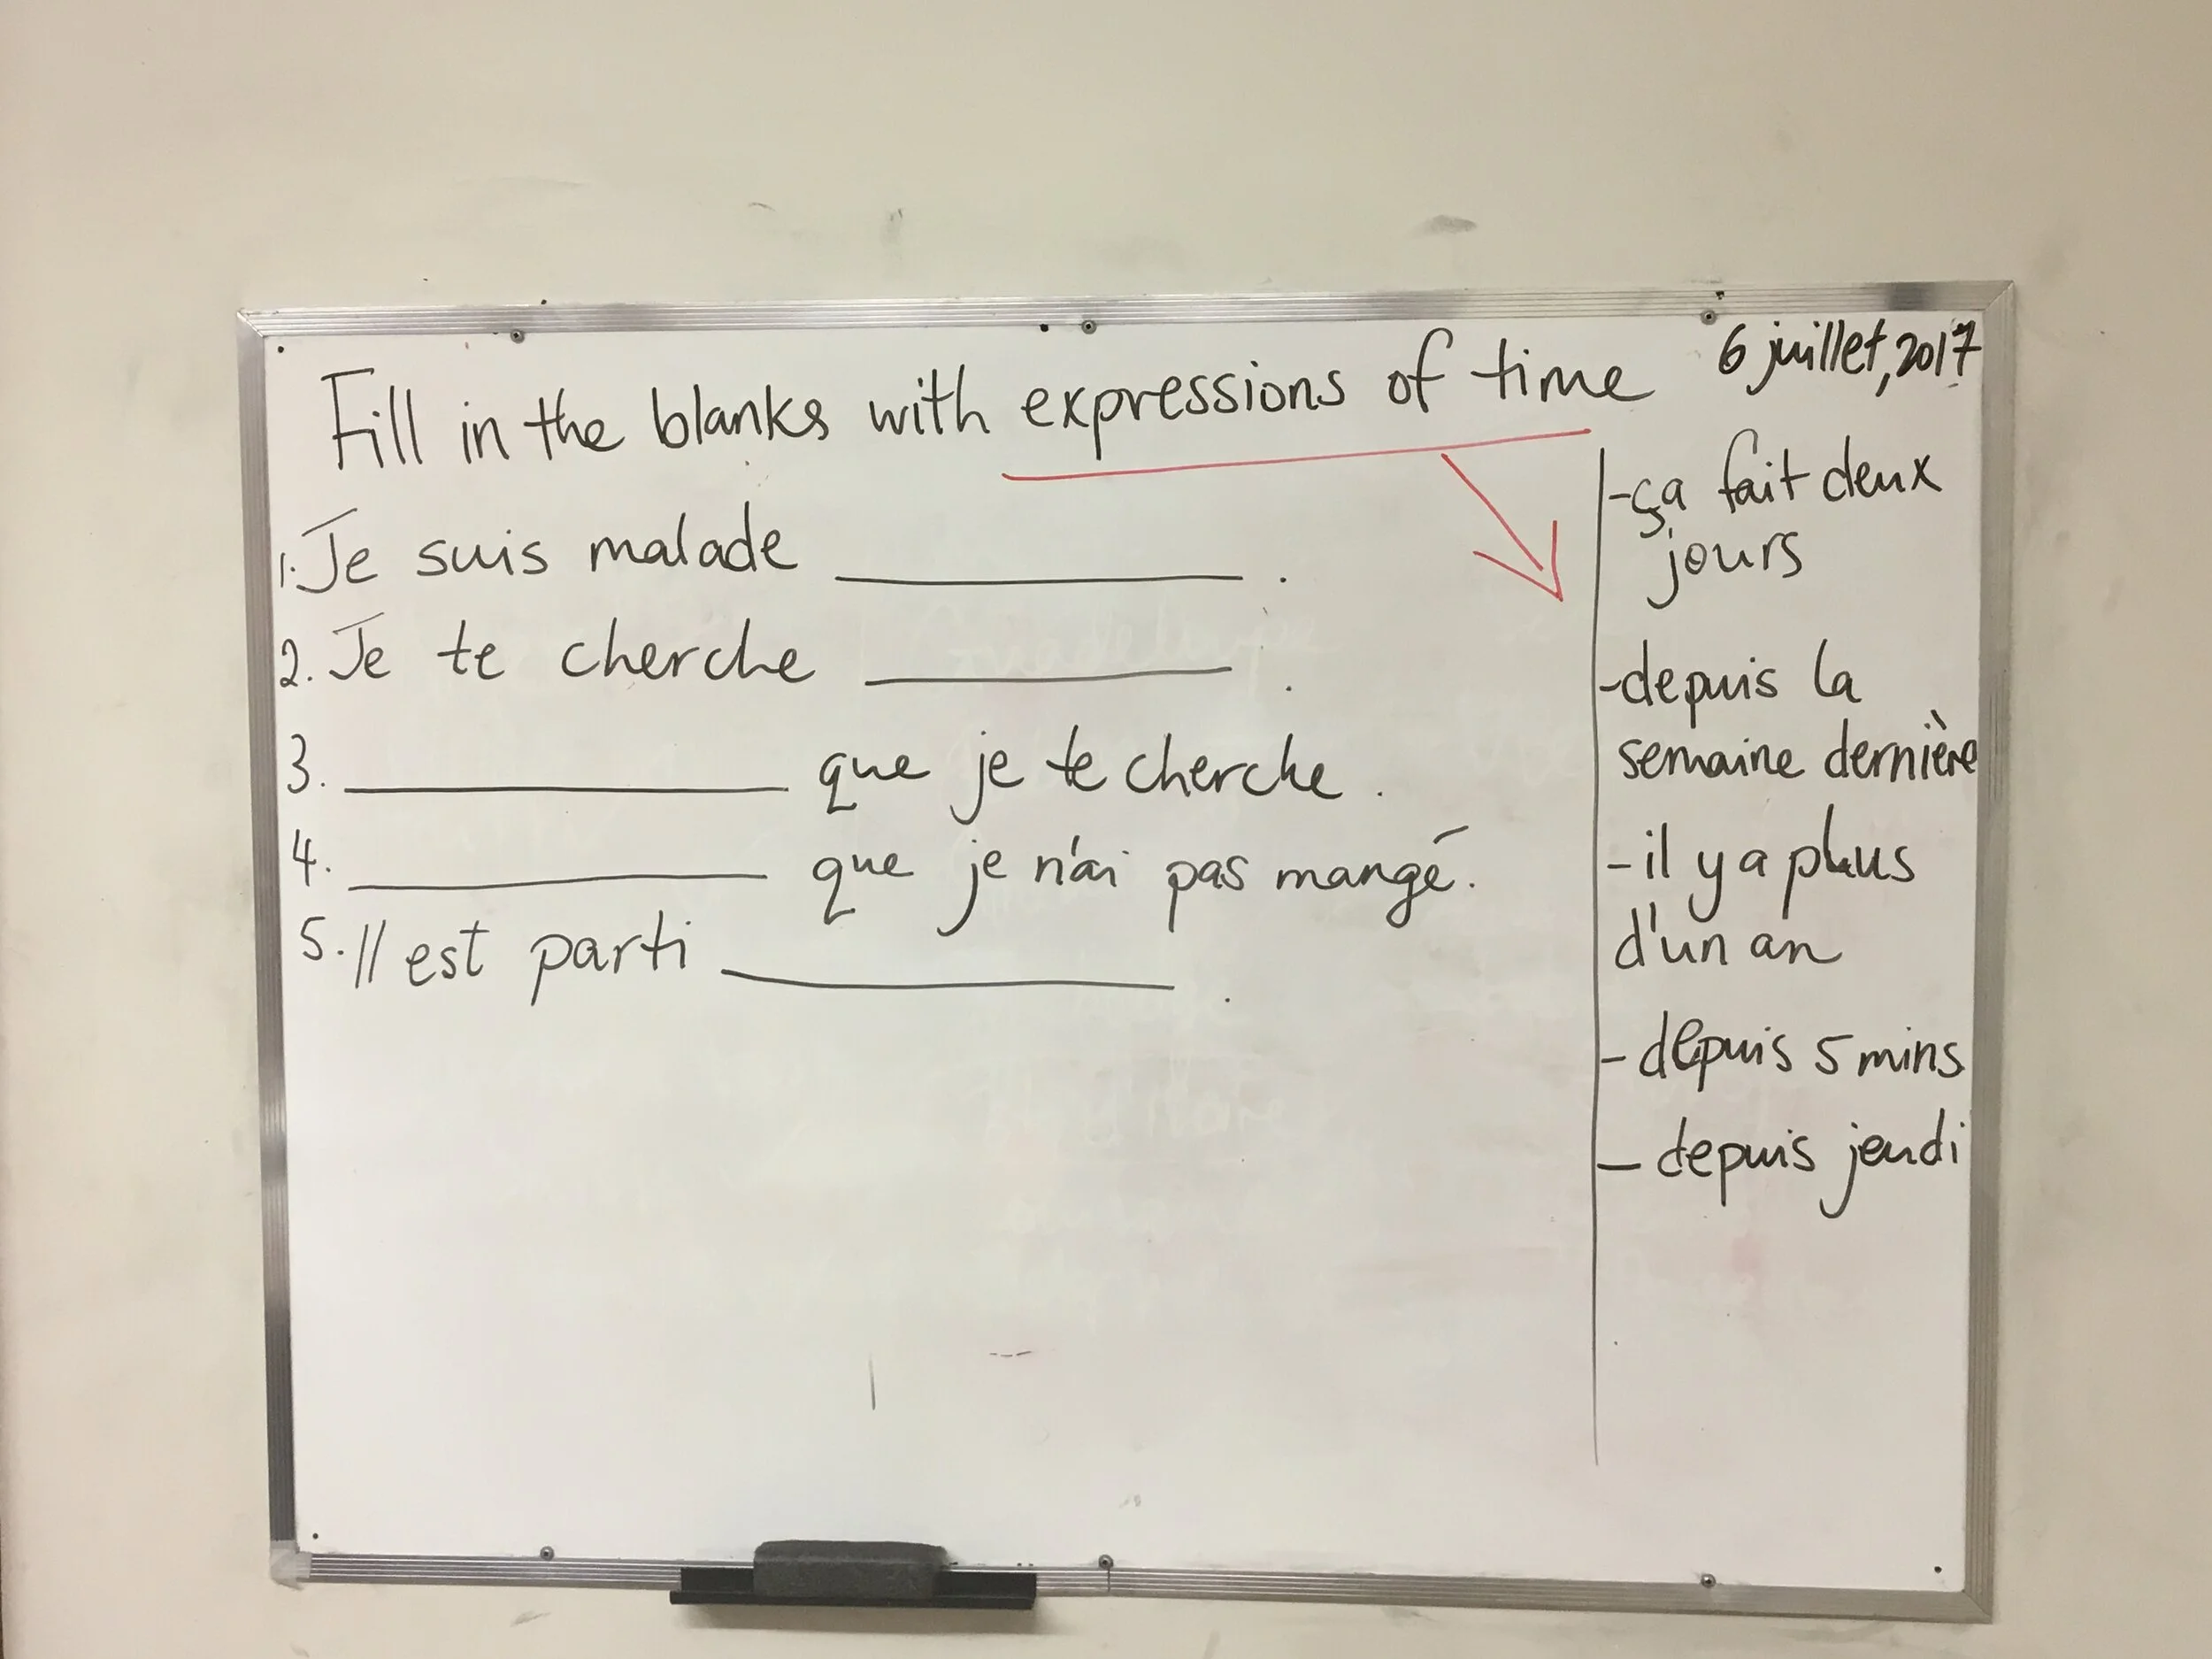 6 juillet, 2017
Fill in the blanks with expressions of time
1. Je suis malade ____________ .
2. Je te cherche ____________ .
3. ____________ que je te cherche .
4. ____________ que je n'ai pas mangé.
5. Il est parti ____________ .
-ça fait deux
jours
-depuis la
semaine dernière
-il y a plus
d'un an
-depuis 5 mins
-depuis jeudi